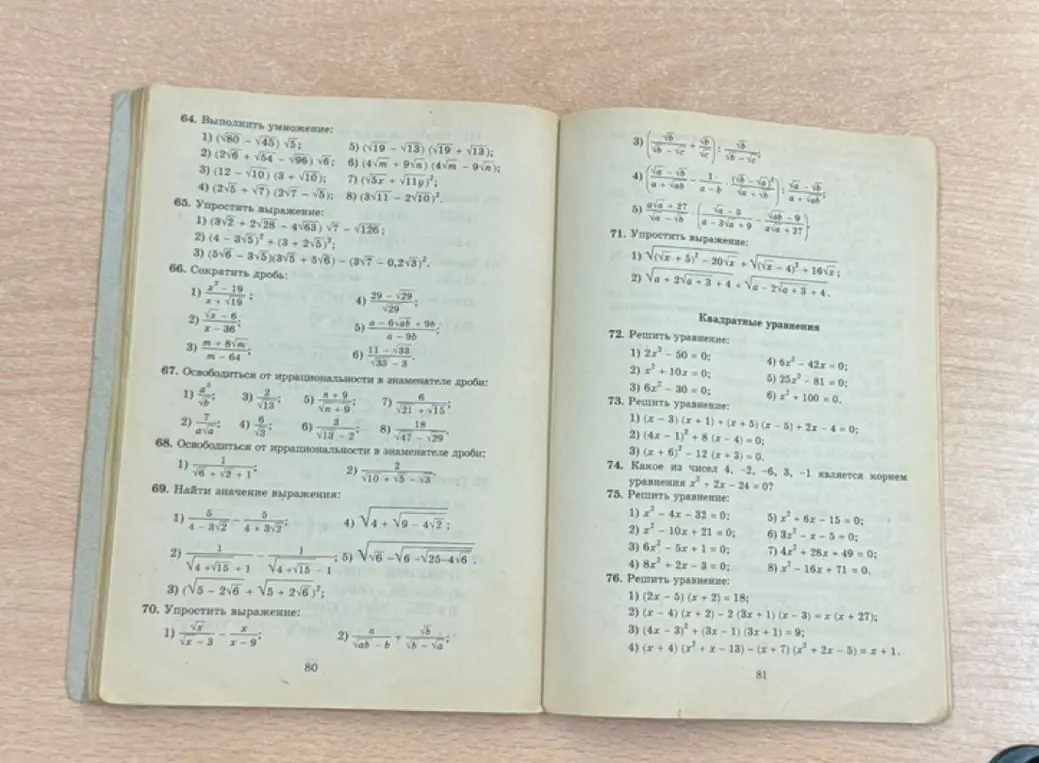 64. Выполнить умножение:
1) (√80 − √45) √5; 5) (√19 − √13) (√19 + √13);
2) (2√6 + √54 − √96) √6; 6) (4√m + 9√n) (4√m − 9√n);
3) (12 − √10) (3 + √10); 7) (√5x + √11y)²;
4) (2√5 + √7) (2√7 − √5); 8) (3√11 − 2√10)².
65. Упростить выражение:
1) (3√2 + 2√28 − 4√63) √7 − √126;
2) (4 − 3√5)² + (3 + 2√5)²;
3) (5√6 − 3√5)(3√5 + 5√6) − (3√7 − 0,2√3)².
66. Сократить дробь:
1) (x² − 19)/(x + √19); 4) (29 − √29)/√29;
2) (√x − 6)/(x − 36); 5) (a − 6√ab + 9b)/(a − 9b);
3) (m + 8√m)/(m − 64); 6) (11 − √33)/(√33 − 3).
67. Освободиться от иррациональности в знаменателе дроби:
1) a²/√b; 3) 2/√13; 5) (n + 9)/√(n + 9); 7) 6/(√21 + √15);
2) 7/(a√a); 4) 6/√3; 6) 3/(√13 − 2); 8) 18/(√47 − √29).
68. Освободиться от иррациональности в знаменателе дроби:
1) 1/(√6 + √2 + 1); 2) 2/(√10 + √5 − √3).
69. Найти значение выражения:
1) 5/(4 − 3√2) − 5/(4 + 3√2); 4) √(4 + √(9 − 4√2));
2) 1/(√(4 + √15) + 1) − 1/(√(4 + √15) − 1); 5) √(√6 − √(6 − √(25 − 4√6))).
3) (√(5 − 2√6) + √(5 + 2√6))²;
70. Упростить выражение:
1) √x/(√x − 3) − x/(x − 9); 2) a/(√ab − b) + √b/(√b − √a);
80
3) (√b/(√b − √c) + √b/√c) : √b/(√b − √c);
4) ((√a − √b)/(a + √ab) − 1/(a − b) · (√b − √a)²/(√a + √b)) : (√a − √b)/(a + √ab);
5) (a√a + 27)/(√a − √b) · ((√a − 3)/(a − 3√a + 9) − (√ab − 9)/(a√a + 27)).
71. Упростить выражение:
1) √((√x + 5)² − 20√x) + √((√x − 4)² + 16√x);
2) √(a + 2√(a + 3) + 4) + √(a − 2√(a + 3) + 4).
Квадратные уравнения
72. Решить уравнение:
1) 2x² − 50 = 0; 4) 6x² − 42x = 0;
2) x² + 10x = 0; 5) 25x² − 81 = 0;
3) 6x² − 30 = 0; 6) x² + 100 = 0.
73. Решить уравнение:
1) (x − 3) (x + 1) + (x + 5) (x − 5) + 2x − 4 = 0;
2) (4x − 1)² + 8 (x − 4) = 0;
3) (x + 6)² − 12 (x + 3) = 0.
74. Какое из чисел 4, −2, −6, 3, −1 является корнем
уравнения x² + 2x − 24 = 0?
75. Решить уравнение:
1) x² − 4x − 32 = 0; 5) x² + 6x − 15 = 0;
2) x² − 10x + 21 = 0; 6) 3x² − x − 5 = 0;
3) 6x² − 5x + 1 = 0; 7) 4x² + 28x + 49 = 0;
4) 8x² + 2x − 3 = 0; 8) x² − 16x + 71 = 0.
76. Решить уравнение:
1) (2x − 5) (x + 2) = 18;
2) (x − 4) (x + 2) − 2 (3x + 1) (x − 3) = x (x + 27);
3) (4x − 3)² + (3x − 1) (3x + 1) = 9;
4) (x + 4) (x² + x − 13) − (x + 7) (x² + 2x − 5) = x + 1.
81